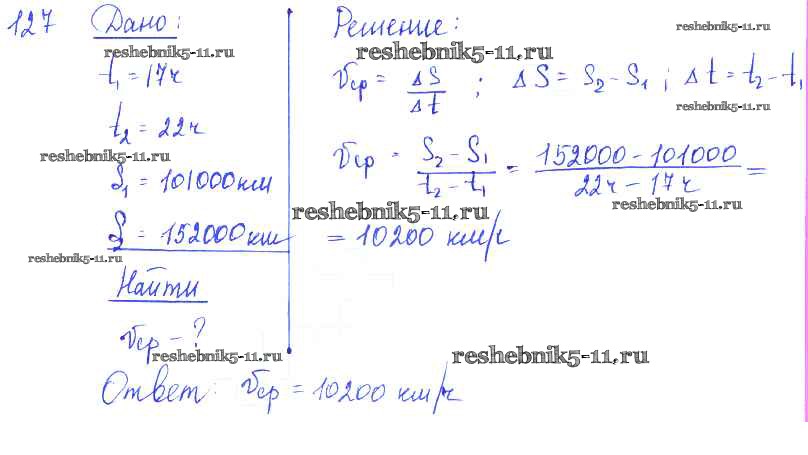 127 Дано:
reshebnik5-11.ru
t₁ = 17ч
t₂ = 22ч
reshebnik5-11.ru
S₁ = 101000км
S = 152000км
reshebnik5-11.ru
Найти
vср - ?
reshebnik5-11.ru
Решение:
reshebnik5-11.ru
reshebnik5-11.ru
vср = ΔS/Δt ; ΔS = S₂ - S₁ ; Δt = t₂ - t₁
reshebnik5-11.ru
vср = (S₂ - S₁)/(t₂ - t₁) = (152000 - 101000)/(22ч - 17ч) =
reshebnik5-11.ru
reshebnik5-11.ru
= 10200 км/ч
reshebnik5-11.ru
Ответ: vср = 10200 км/ч